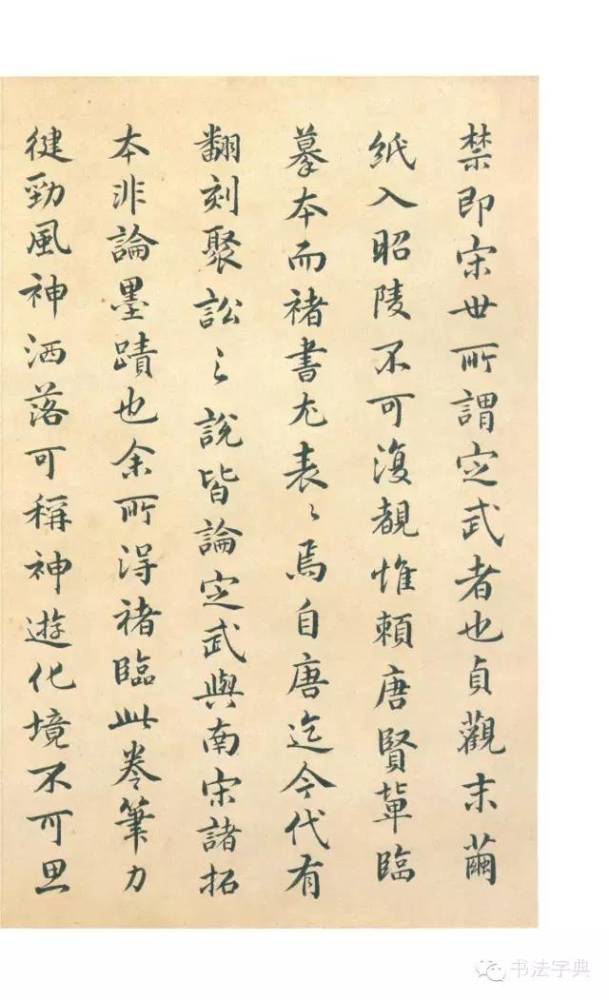 禁即宋世所謂定武者也貞觀末繭
紙入昭陵不可復覩惟賴唐賢輩臨
摹本而褚書尤表〻焉自唐迄今代有
翻刻聚訟〻說皆論定武與南宋諸拓
本非論墨蹟也余所得褚臨此卷筆力
健勁風神洒落可稱神遊化境不可思
书法字典